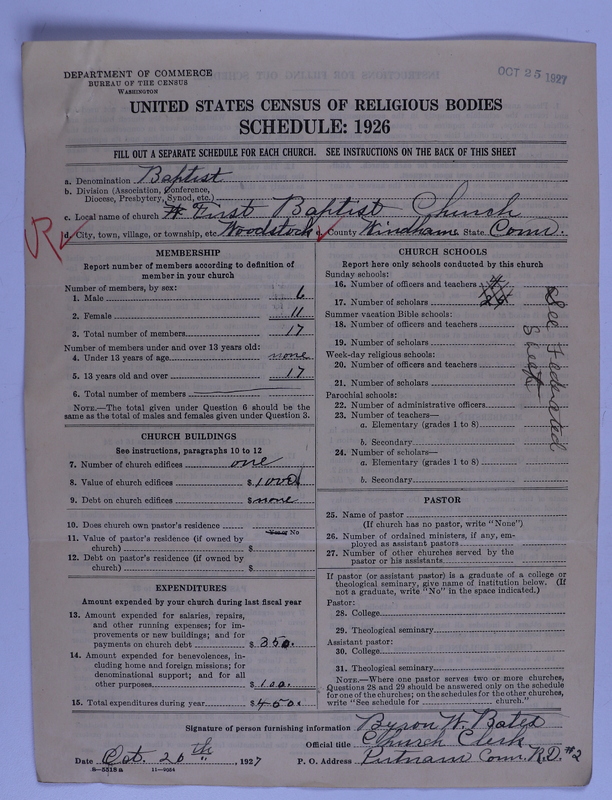 DEPARTMENT OF COMMERCE
BUREAU OF THE CENSUS
WASHINGTON
OCT 25 1927
UNITED STATES CENSUS OF RELIGIOUS BODIES
SCHEDULE: 1926
FILL OUT A SEPARATE SCHEDULE FOR EACH CHURCH. SEE INSTRUCTIONS ON THE BACK OF THIS SHEET
a. Denomination Baptist
b. Division (Association, Conference,
Diocese, Presbytery, Synod, etc.)
c. Local name of church First Baptist Church
d. City, town, village, or township, etc. Woodstock County Windham State Conn.
MEMBERSHIP
Report number of members according to definition of
member in your church
Number of members, by sex:
1. Male 6
2. Female 11
3. Total number of members 17
Number of members under and over 13 years old:
4. Under 13 years of age none
5. 13 years old and over 17
6. Total number of members
NOTE.—The total given under Question 6 should be the
same as the total of males and females given under Question 3.
CHURCH BUILDINGS
See instructions, paragraphs 10 to 12
7. Number of church edifices one
8. Value of church edifices $1000
9. Debt on church edifices $none
10. Does church own pastor's residence
Yes or No
11. Value of pastor's residence (if owned by
church) $
12. Debt on pastor's residence (if owned by
church) $
EXPENDITURES
Amount expended by your church during last fiscal year
13. Amount expended for salaries, repairs,
and other running expenses; for im-
provements or new buildings; and for
payments on church debt $350.
14. Amount expended for benevolences, in-
cluding home and foreign missions; for
denominational support; and for all
other purposes $100.
15. Total expenditures during year $450.
CHURCH SCHOOLS
Report here only schools conducted by this church
Sunday schools:
16. Number of officers and teachers 4
17. Number of scholars
Summer vacation Bible schools:
18. Number of officers and teachers
19. Number of scholars
Week-day religious schools:
20. Number of officers and teachers
21. Number of scholars
Parochial schools:
22. Number of administrative officers
23. Number of teachers—
a. Elementary (grades 1 to 8)
b. Secondary
24. Number of scholars—
a. Elementary (grades 1 to 8)
b. Secondary
See Federated
Sheet
PASTOR
25. Name of pastor
(If church has no pastor, write "None")
26. Number of ordained ministers, if any, em-
ployed as assistant pastors
27. Number of other churches served by the
pastor or his assistants
If pastor (or assistant pastor) is a graduate of a college or
theological seminary, give name of institution below. (If
not a graduate, write "No" in the space indicated.)
Pastor:
28. College
29. Theological seminary
Assistant pastor:
30. College
31. Theological seminary
NOTE.—Where one pastor serves two or more churches,
Questions 28 and 29 should be answered only on the schedule
for one of the churches; on the schedules for the other churches,
write "See schedule for church."
Signature of person furnishing information Byron W. Bates
Official title Church Clerk
Date Oct. 20th, 1927 P. O. Address Putnam Conn. R.D. #2
8—5518a 11—9054